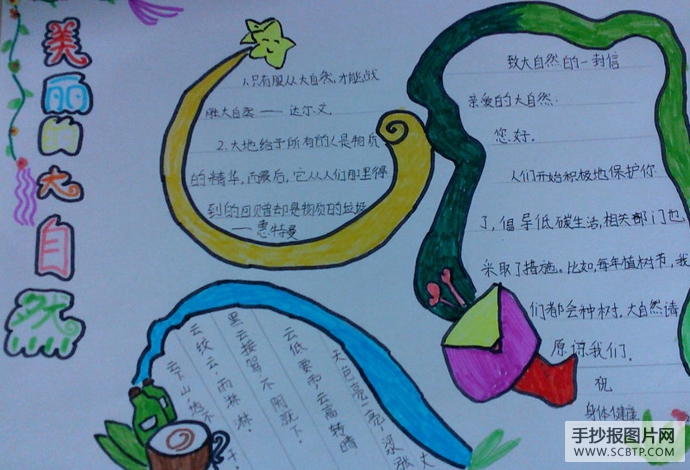 美丽的大自然
1.只有服从大自然,才能战
胜大自然 —— 达尔文
2.大地给予所有的人是物质
的精华,而最后,它从人们那里得
到的回赠却是物质的垃圾
—— 惠特曼
致大自然的一封信
亲爱的大自然:
您好.
人们开始积极地保护你
了,倡导低碳生活,相关部门也
采取了措施。比如,每年植树节,我
们都会种树.大自然请
原谅我们.
祝
身体健康
天色亮一亮,
云低要雨,云高转晴
云接驾不
云绞云,雨淋淋.
手抄报图片网
WWW.SCBTP.COM